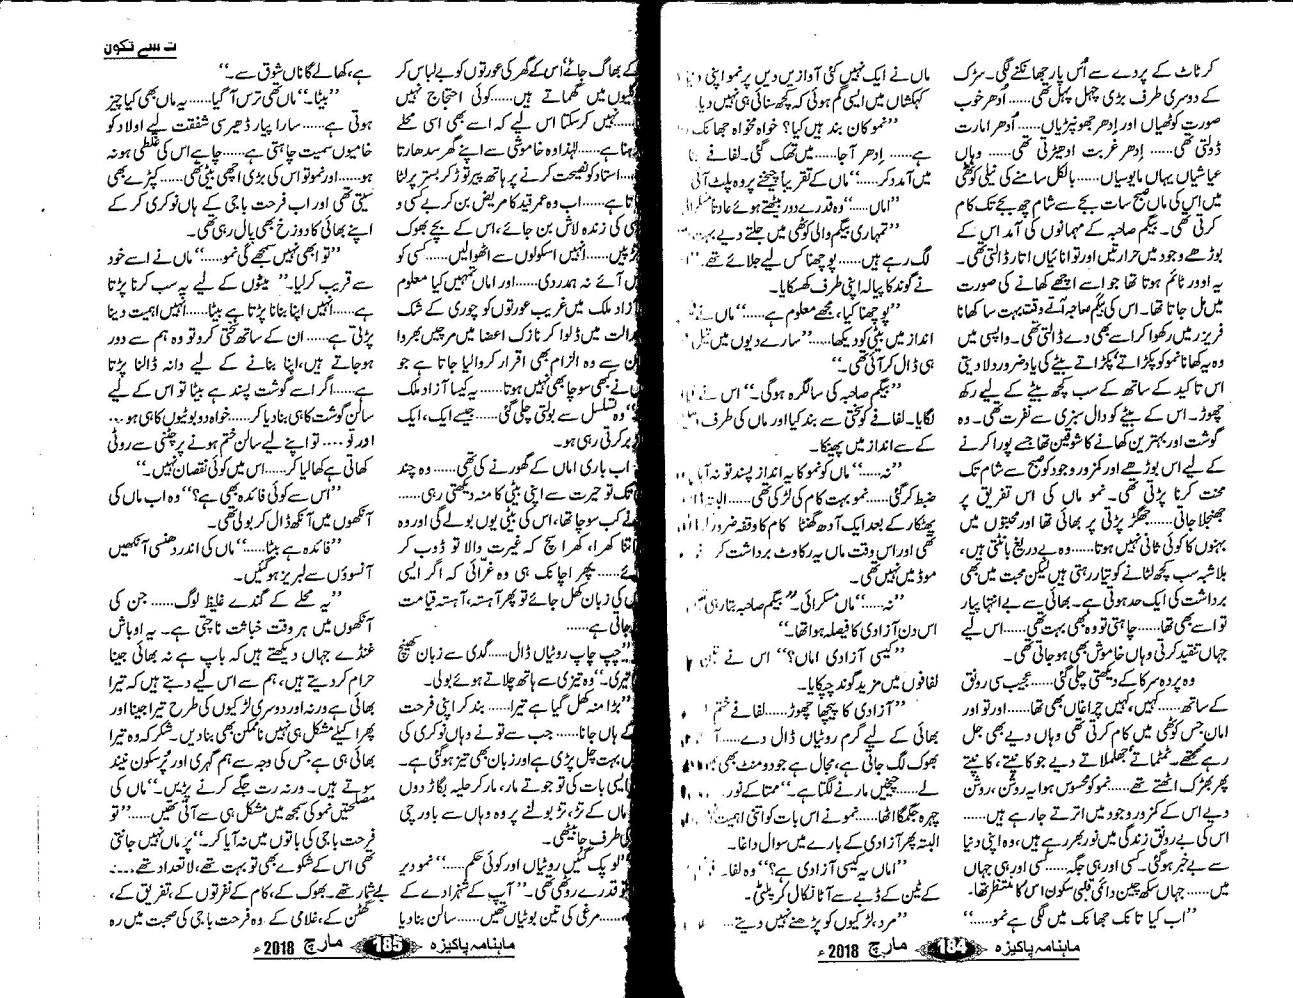 کر ٹاٹ کے پردے سے اُس پار جھانکنے لگی۔ سڑک
کے دوسری طرف بڑی چہل پہل تھی...... اُدھر خوب
صورت کوٹھیاں اور اِدھر جھونپڑیاں...... اُدھر امارت
ڈولتی تھی...... اِدھر غربت اودھیڑتی تھی...... وہاں
عیاشیاں یہاں مایوسیاں...... بالکل سامنے کی نیلی کوٹھی
میں اس کی ماں صبح سات بجے سے شام چھ بجے تک کام
کرتی تھی۔ بیگم صاحبہ کے مہمانوں کی آمد اس کے
بوڑھے وجود میں حرارتیں اور توانائیاں اتار ڈالتی تھی۔
یہ اوور ٹائم ہوتا تھا جو اسے اچھے کھانے کی صورت
میں مل جاتا تھا۔ اس کی بیگم صاحبہ آتے وقت بہت سا کھانا
فریزر میں رکھوا کر اسے بھی دے ڈالتی تھی۔ واپسی میں
وہ یہ کھانا نمو کو پکڑاتے پکڑاتے بیٹے کی یاد ضرور دلا دیتی
اس تاکید کے ساتھ کے سب کچھ بیٹے کے لیے رکھ
چھوڑ۔ اس کے بیٹے کو دال سبزی سے نفرت تھی۔ وہ
گوشت اور بہترین کھانے کا شوقین تھا جسے پورا کرنے
کے لیے اس بوڑھے اور کمزور وجود کو صبح سے شام تک
محنت کرنا پڑتی تھی۔ نمو ماں کی اس تفریق پر
جھنجلا جاتی...... جھگڑ پڑتی پر بھائی تھا اور محبتوں میں
بہنوں کا کوئی ثانی نہیں ہوتا...... وہ بے دریغ بانٹتی ہیں،
بلاشبہ سب کچھ لٹانے کو تیار رہتی ہیں لیکن محبت میں بھی
برداشت کی ایک حد ہوتی ہے۔ بھائی سے بے انتہا پیار
تو اسے بھی تھا...... چاہتی تو وہ بھی بہت تھی...... اس لیے
جہاں تنقید کرتی وہاں خاموش بھی ہو جاتی تھی۔
وہ پردہ سرکا کے دیکھتی چلی گئی...... عجیب سی رونق
کے ساتھ...... کہیں، کہیں چراغاں بھی تھا...... اور تو اور
اماں جس کوٹھی میں کام کرتی تھی وہاں دیے بھی جل
رہے تھے۔ ٹمٹماتے جھلملاتے دیے جو کانپتے، کانپتے
پھر بھڑک اٹھتے تھے...... نمو کو محسوس ہوا یہ روشن، روشن
دیے اس کے کمزور وجود میں اترتے جا رہے ہیں......
اس کی بے رونق زندگی میں نور بھر رہے ہیں، وہ اپنی دنیا
سے بے خبر ہو گئی۔ کسی اور ہی جگہ...... کسی اور ہی جہاں
میں...... جہاں سکھ چین دائمی قلبی سکون اس کا منتظر تھا۔
”اب کیا تانک جھانک میں لگی ہے نمو......“
ماں نے ایک نہیں کئی آوازیں دیں پر نمو اپنی
کہکشاں میں ایسی گم ہوئی کہ کچھ سنائی ہی نہیں دیا۔
”نمو کان بند ہیں کیا؟ خواہ مخواہ جھانک
ہے...... اِدھر آ جا...... میں تھک گئی۔ لفافے
میں آمدد کر......“ ماں کے تقریباً چیخنے پر وہ پلٹ آئی
”اماں......“ وہ قدرے دور بیٹھتے ہوئے عادتاً مسکرائی
”تمہاری بیگم والی کوٹھی میں جلتے دیے بہت
لگ رہے ہیں...... پوچھنا کس لیے جلائے تھے۔“
نے گوند کا پیالہ اپنی طرف کھسکایا۔
”پوچھنا کیا، مجھے معلوم ہے......“ ماں نے
انداز میں بیٹی کو دیکھا...... ”سارے دیوں میں تیل
ہی ڈال کر آئی تھی۔“
”بیگم صاحبہ کی سالگرہ ہو گی۔“ اس نے
لگایا۔ لفافے کو سختی سے بند کیا اور ماں کی طرف
کے سے انداز میں پھینکا۔
”نہ......“ ماں کو نمو کا یہ انداز پسند تو نہ آیا
ضبط کر گئی...... نمو بہت کام کی لڑکی تھی......
پھٹکار کے بعد ایک آدھ گھنٹا کام کا وقفہ ضرور
تھی اور اس وقت ماں یہ رکاوٹ برداشت کر
موڈ میں نہیں تھی۔
”نہ......“ ماں مسکرائی۔ ”بیگم صاحبہ بتا رہی
اس دن آزادی کا فیصلہ ہوا تھا۔“
”کیسی آزادی اماں؟“ اس نے
لفافوں میں مزید گوند چپکایا۔
”آزادی کا پیچھا چھوڑ...... لفافے ختم
بھائی کے لیے گرم روٹیاں ڈال دے......
بھوک لگ جاتی ہے، مجال ہے جو دو منٹ بھی
لے...... چیخیں مارنے لگتا ہے۔“ ممتا کے نور
چہرہ جگمگا اٹھا...... نمو نے اس بات کو اتنی اہمیت
البتہ پھر آزادی کے بارے میں سوال داغا۔
”اماں یہ کیسی آزادی ہے؟“ وہ
کے ٹین کے ڈبے سے آٹا نکال کر پلٹی۔
”مرد، لڑکیوں کو پڑھنے نہیں دیتے...
ماہنامہ پاکیزہ 184 مارچ 2018ء
ت سے تکون
کے بھاگ جائے، اس کے گھر کی عورتوں کو بے لباس کر
گلیوں میں گھماتے ہیں...... کوئی احتجاج نہیں
...... نہیں کر سکتا اس لیے کہ اسے بھی اسی محلے
رہنا ہے...... لہٰذا وہ خاموشی سے اپنے گھر سدھارتا
...... استاد کو نصیحت کرنے پر ہاتھ پیر توڑ کر بستر پر لٹا
جاتا ہے...... اب وہ عمر قید کا مریض بن کر بے کسی و
کی زندہ لاش بن جائے، اس کے بچے بھوک
تڑپیں...... انہیں اسکولوں سے اٹھوا لیں...... کسی کو
آئے نہ ہمدردی...... اور اماں تمہیں کیا معلوم
آزاد ملک میں غریب عورتوں کو چوری کے شک
میں ڈلوا کر نازک اعضا میں مرچیں بھروا
ان سے وہ الزام بھی اقرار کروا لیا جاتا ہے جو
نے بھی سوچا بھی نہیں ہوتا...... یہ کیسا آزاد ملک
“ وہ تسلسل سے بولتی چلی گئی...... جیسے ایک، ایک
بر کرتی رہی ہو۔
اب باری اماں کے گھورنے کی تھی...... وہ چند
تک تو حیرت سے اپنی بیٹی کا منہ دیکھتی رہی......
نے کب سوچا تھا، اس کی بیٹی یوں بولے گی اور وہ
اتنا کھرا، کھرا سچ کہ غیرت والا تو ڈوب کر
...... پھر اچانک ہی وہ غرّائی کہ اگر ایسی
کی زبان کھل جائے تو پھر آہستہ، آہستہ قیامت
جاتی ہے......
”چپ چاپ روٹیاں ڈال...... گدی سے زبان کھینچ
تیری۔“ وہ تیزی سے ہاتھ چلاتے ہوئے بولی۔
”بڑا منہ کھل گیا ہے تیرا...... بند کر اپنی فرحت
کے ہاں جانا...... جب سے تو نے وہاں نوکری کی
بہت چل پڑی ہے اور زبان بھی تیز ہو گئی ہے۔
ایسی بات کی تو جوتے مار، مار کر حلیہ بگاڑ دوں
ماں کے تڑ، تڑ بولنے پر وہ وہاں سے باورچی
کی طرف جا بیٹھی۔
”لو پک گئیں روٹیاں اور کوئی حکم......“ نمو دیر
قدرے روٹھی تھی۔ ”آپ کے شہزادے کے
...... مرغی کی تین بوٹیاں تھیں...... سالن بنا دیا
ہے، کھا لے گا ناں شوق سے۔“
”بیٹا۔“ ماں تھی ترس آ گیا...... یہ ماں بھی کیا چیز
ہوتی ہے...... سارا پیار ڈھیر سی شفقت لیے اولاد کو
خامیوں سمیت چاہتی ہے...... چاہے اس کی غلطی ہو نہ
ہو...... اور نمو تو اس کی بڑی اچھی بیٹی تھی...... کپڑے بھی
سیتی تھی اور اب فرحت باجی کے ہاں نوکری کر کے
اپنے بھائی کا دوزخ بھی پال رہی تھی۔
”تو ابھی نہیں سمجھے گی نمو......“ ماں نے اسے خود
سے قریب کر لیا۔ ”بیٹوں کے لیے یہ سب کرنا پڑتا
ہے...... انہیں اپنا بنانا پڑتا ہے بیٹا...... انہیں اہمیت دینا
پڑتی ہے...... ان کے ساتھ سختی کرو تو وہ ہم سے دور
ہو جاتے ہیں، اپنا بنانے کے لیے دانہ ڈالنا پڑتا
ہے...... اگر اسے گوشت پسند ہے بیٹا تو اس کے لیے
سالن گوشت کا ہی بنا دیا کر...... خواہ دو بوٹیوں کا ہی ہو...
اور تو.... تو اپنے لیے سالن ختم ہونے پر چٹنی سے روٹی
کھاتی ہے کھا لیا کر...... اس میں کوئی نقصان نہیں۔“
”اس سے کوئی فائدہ بھی ہے؟“ وہ اب ماں کی
آنکھوں میں آنکھ ڈال کر بولی تھی۔
”فائدہ ہے بیٹا......“ ماں کی اندر دھنسی آنکھیں
آنسوؤں سے لبریز ہو گئیں۔
”یہ محلے کے گندے غلیظ لوگ...... جن کی
آنکھوں میں ہر وقت خباثت ناچتی ہے۔ یہ اوباش
غنڈے جہاں دیکھتے ہیں کہ باپ ہے نہ بھائی جینا
حرام کر دیتے ہیں، ہم سے اس لیے دبتے ہیں کہ تیرا
بھائی ہے ورنہ اور دوسری لڑکیوں کی طرح تیرا جینا اور
پھر اکیلے مشکل ہی نہیں ناممکن بھی بنا دیں۔ شکر کہ وہ تیرا
بھائی ہی ہے جس کی وجہ سے ہم گہری اور پُرسکون نیند
سوتے ہیں۔ ورنہ رت جگے کرنے پڑیں۔“ ماں کی
مصلحتیں نمو کی سمجھ میں مشکل ہی سے آتی تھیں...... ”تو
فرحت باجی کی باتوں میں نہ آیا کر۔“ پر ماں نہیں جانتی
تھی اس کے شکوے بھی تو بہت تھے، لاتعداد تھے......
بے شمار تھے۔ بھوک کے، کام کے نفرتوں کے، تفریق کے،
گھٹن کے، غلامی کے۔ وہ فرحت باجی کی صحبت میں رہ
ماہنامہ پاکیزہ 185 مارچ 2018ء